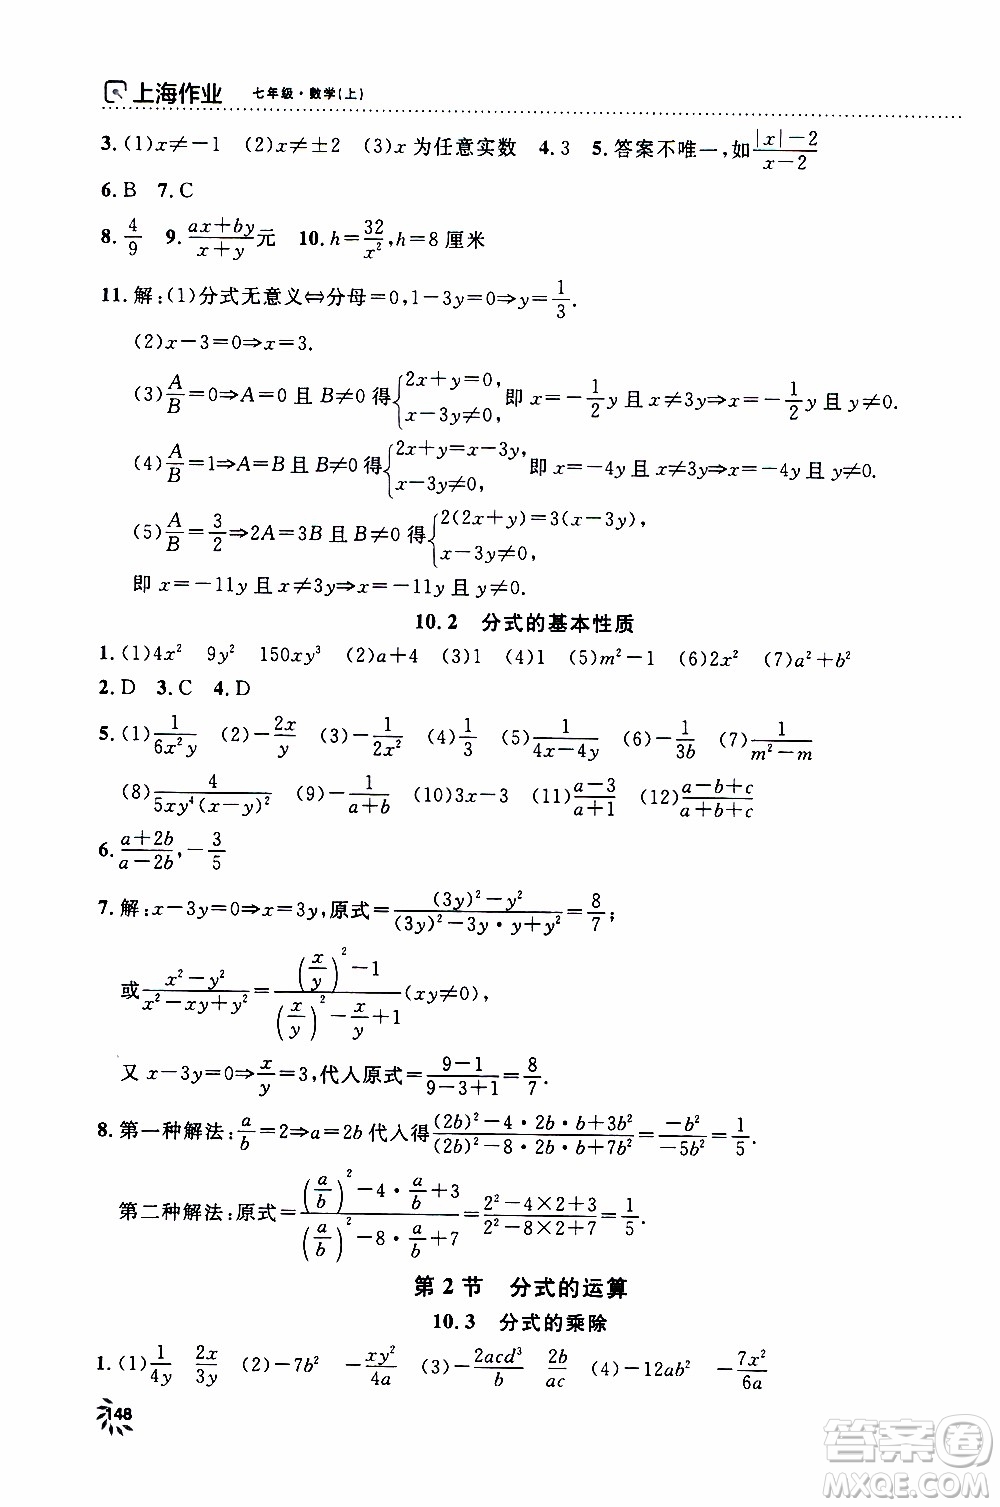 上海作业 七年级·数学(上)
3.(1)x≠-1 (2)x≠±2 (3)x为任意实数 4.3 5.答案不唯一,如(|x|-2)/(x-2)
6.B 7.C
8. 4/9 9. (ax+by)/(x+y)元 10.h=32/x²,h=8厘米
11.解:(1)分式无意义⇔分母=0,1-3y=0⇒y=1/3.
(2)x-3=0⇒x=3.
(3)A/B=0⇒A=0且B≠0得{2x+y=0, x-3y≠0,即x=-1/2 y且x≠3y⇒x=-1/2 y且y≠0.
(4)A/B=1⇒A=B且B≠0得{2x+y=x-3y, x-3y≠0,即x=-4y且x≠3y⇒x=-4y且y≠0.
(5)A/B=3/2⇒2A=3B且B≠0得{2(2x+y)=3(x-3y), x-3y≠0,
即x=-11y且x≠3y⇒x=-11y且y≠0.
10.2 分式的基本性质
1.(1)4x² 9y² 150xy³ (2)a+4 (3)1 (4)1 (5)m²-1 (6)2x² (7)a²+b²
2.D 3.C 4.D
5.(1)1/(6x²y) (2)-2x/y (3)-1/(2x²) (4)1/3 (5)1/(4x-4y) (6)-1/(3b) (7)1/(m²-m)
(8)4/(5xy⁴(x-y)²) (9)-1/(a+b) (10)3x-3 (11)(a-3)/(a+1) (12)(a-b+c)/(a+b+c)
6.(a+2b)/(a-2b),-3/5
7.解:x-3y=0⇒x=3y,原式=((3y)²-y²)/((3y)²-3y·y+y²)=8/7;
或(x²-y²)/(x²-xy+y²)=((x/y)²-1)/((x/y)²-x/y+1)(xy≠0),
又x-3y=0⇒x/y=3,代人原式=(9-1)/(9-3+1)=8/7.
8.第一种解法:a/b=2⇒a=2b代人得((2b)²-4·2b·b+3b²)/((2b)²-8·2b·b+7b²)=-b²/-5b²=1/5.
第二种解法:原式=((a/b)²-4·a/b+3)/((a/b)²-8·a/b+7)=(2²-4×2+3)/(2²-8×2+7)=1/5.
第2节 分式的运算
10.3 分式的乘除
1.(1)1/(4y) 2x/(3y) (2)-7b² -xy²/(4a) (3)-2acd³/b 2b/(ac) (4)-12ab² -7x²/(6a)
148
答案圈
MXQE.COM